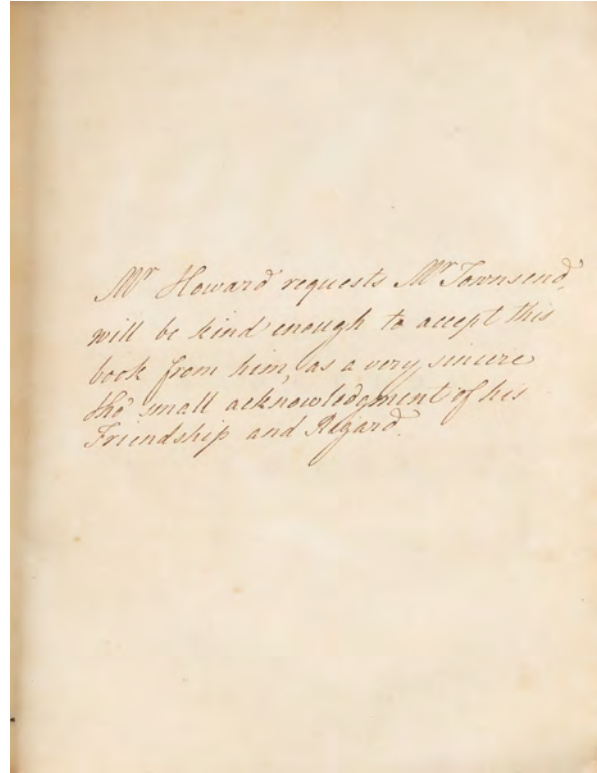 Mr Howard requests Mr Townsend,
will be kind enough to accept this
book from him, as a very sincere
tho' small acknowledgment of his
Friendship and Regard.